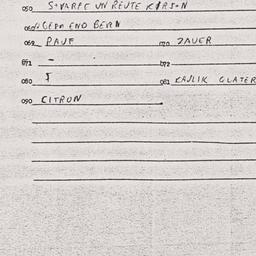 050 S-VARFC UN REUTE KIRS-N
GEDA END BERN
069 PAUF 070 ZAUER
071 - 072
080 5 081 KAJLIK GLATER
090 CITRON